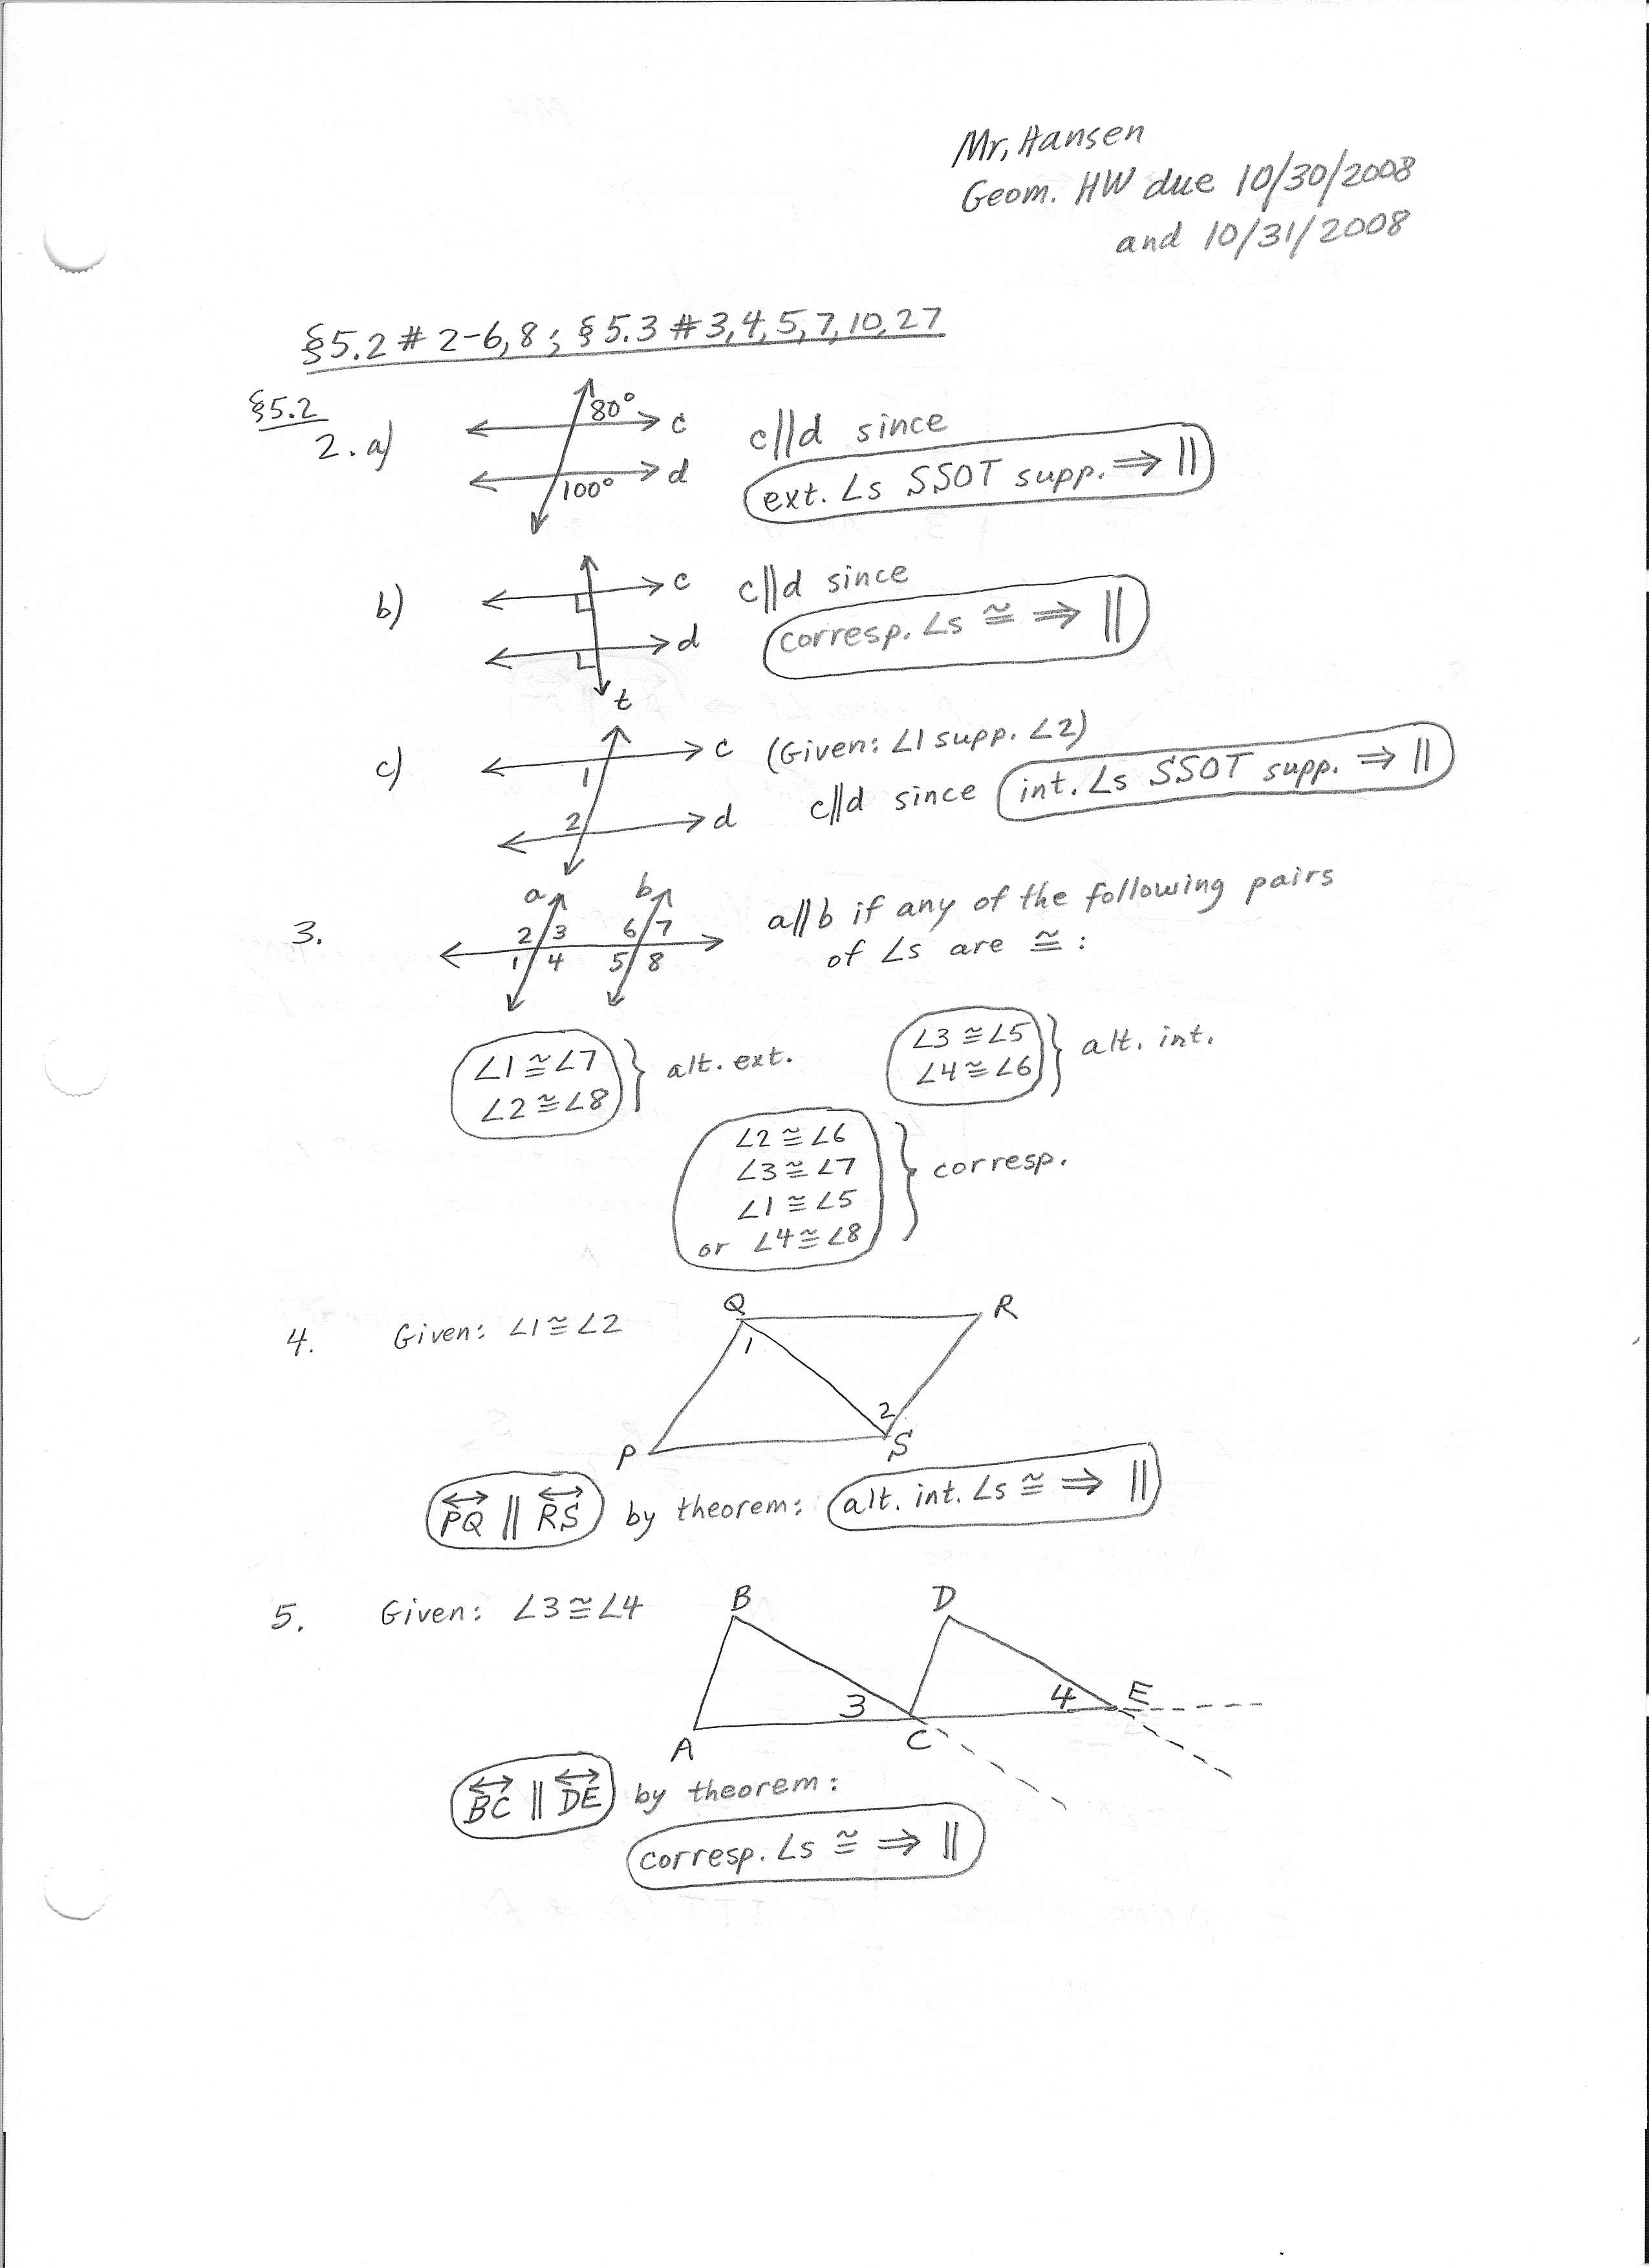 Mr. Hansen
Geom. HW due 10/30/2008
and 10/31/2008
§5.2 # 2-6, 8 ; §5.3 # 3, 4, 5, 7, 10, 27
§5.2
2. a)
80°
c
100°
d
c∥d since
ext. ∠s SSOT supp. ⇒ ∥
b)
c
d
t
c∥d since
corresp. ∠s ≅ ⇒ ∥
c)
1
c
2
d
(Given: ∠1 supp. ∠2)
c∥d since int. ∠s SSOT supp. ⇒ ∥
3.
a b
2 3 6 7
1 4 5 8
a∥b if any of the following pairs
of ∠s are ≅ :
∠1 ≅ ∠7
∠2 ≅ ∠8
alt. ext.
∠3 ≅ ∠5
∠4 ≅ ∠6
alt. int.
∠2 ≅ ∠6
∠3 ≅ ∠7
∠1 ≅ ∠5
or ∠4 ≅ ∠8
corresp.
4. Given: ∠1 ≅ ∠2
Q R
1
2
P S
PQ ∥ RS by theorem: alt. int. ∠s ≅ ⇒ ∥
5. Given: ∠3 ≅ ∠4
B D
3 4 E
A C
BC ∥ DE by theorem:
corresp. ∠s ≅ ⇒ ∥